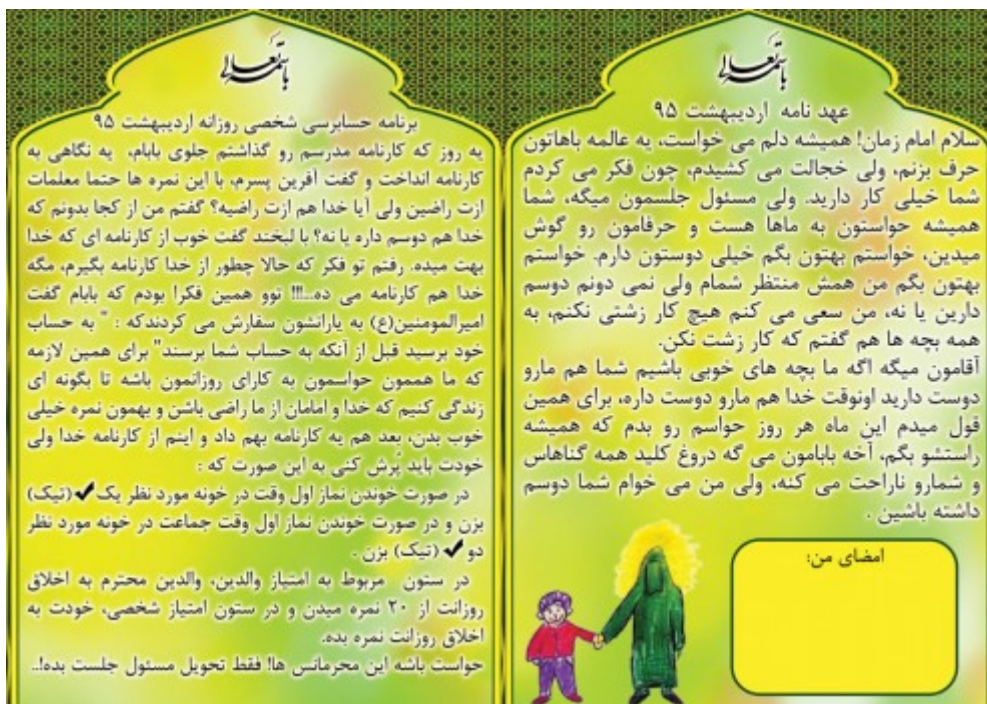 باسمه تعالی
عهد نامه اردیبهشت ۹۵
سلام امام زمان! همیشه دلم می خواست، یه عالمه باهاتون
حرف بزنم، ولی خجالت می کشیدم، چون فکر می کردم
شما خیلی کار دارید. ولی مسئول جلسمون میگه، شما
همیشه حواستون به ماها هست و حرفامون رو گوش
میدین، خواستم بهتون بگم خیلی دوستون دارم. خواستم
بهتون بگم من همش منتظر شمام ولی نمی دونم دوسم
دارین یا نه، من سعی می کنم هیچ کار زشتی نکنم، به
همه بچه ها هم گفتم که کار زشت نکن.
آقامون میگه اگه ما بچه های خوبی باشیم شما هم مارو
دوست دارید اونوقت خدا هم مارو دوست داره، برای همین
قول میدم این ماه هر روز حواسم رو بدم که همیشه
راستشو بگم، آخه بابامون می گه دروغ کلید همه گناهاس
و شمارو ناراحت می کنه، ولی من می خوام شما دوسم
داشته باشین .
امضای من:
باسمه تعالی
برنامه حسابرسی شخصی روزانه اردیبهشت ۹۵
یه روز که کارنامه مدرسم رو گذاشتم جلوی بابام، یه نگاهی به
کارنامه انداخت و گفت آفرین پسرم، با این نمره ها حتما معلمات
ازت راضین ولی آیا خدا هم ازت راضیه؟ گفتم من از کجا بدونم که
خدا هم دوسم داره یا نه؟ با لبخند گفت خوب از کارنامه ای که خدا
بهت میده. رفتم تو فکر که حالا چطور از خدا کارنامه بگیرم، مگه
خدا هم کارنامه می ده...!!! توو همین فکرا بودم که بابام گفت
امیرالمومنین(ع) به یارانشون سفارش می کردندکه : " به حساب
خود برسید قبل از آنکه به حساب شما برسند" برای همین لازمه
که ما هممون حواسمون به کارای روزانمون باشه تا بگونه ای
زندگی کنیم که خدا و امامان از ما راضی باشن و بهمون نمره خیلی
خوب بدن، بعد هم یه کارنامه بهم داد و اینم از کارنامه خدا ولی
خودت باید پُرش کنی به این صورت که :
در صورت خوندن نماز اول وقت در خونه مورد نظر یک ✔ (تیک)
بزن و در صورت خوندن نماز اول وقت جماعت در خونه مورد نظر
دو ✔ (تیک) بزن .
در ستون مربوط به امتیاز والدین، والدین محترم به اخلاق
روزانت از ۲۰ نمره میدن و در ستون امتیاز شخصی، خودت به
اخلاق روزانت نمره بده.
حواست باشه این محرمانس ها! فقط تحویل مسئول جلست بده!..